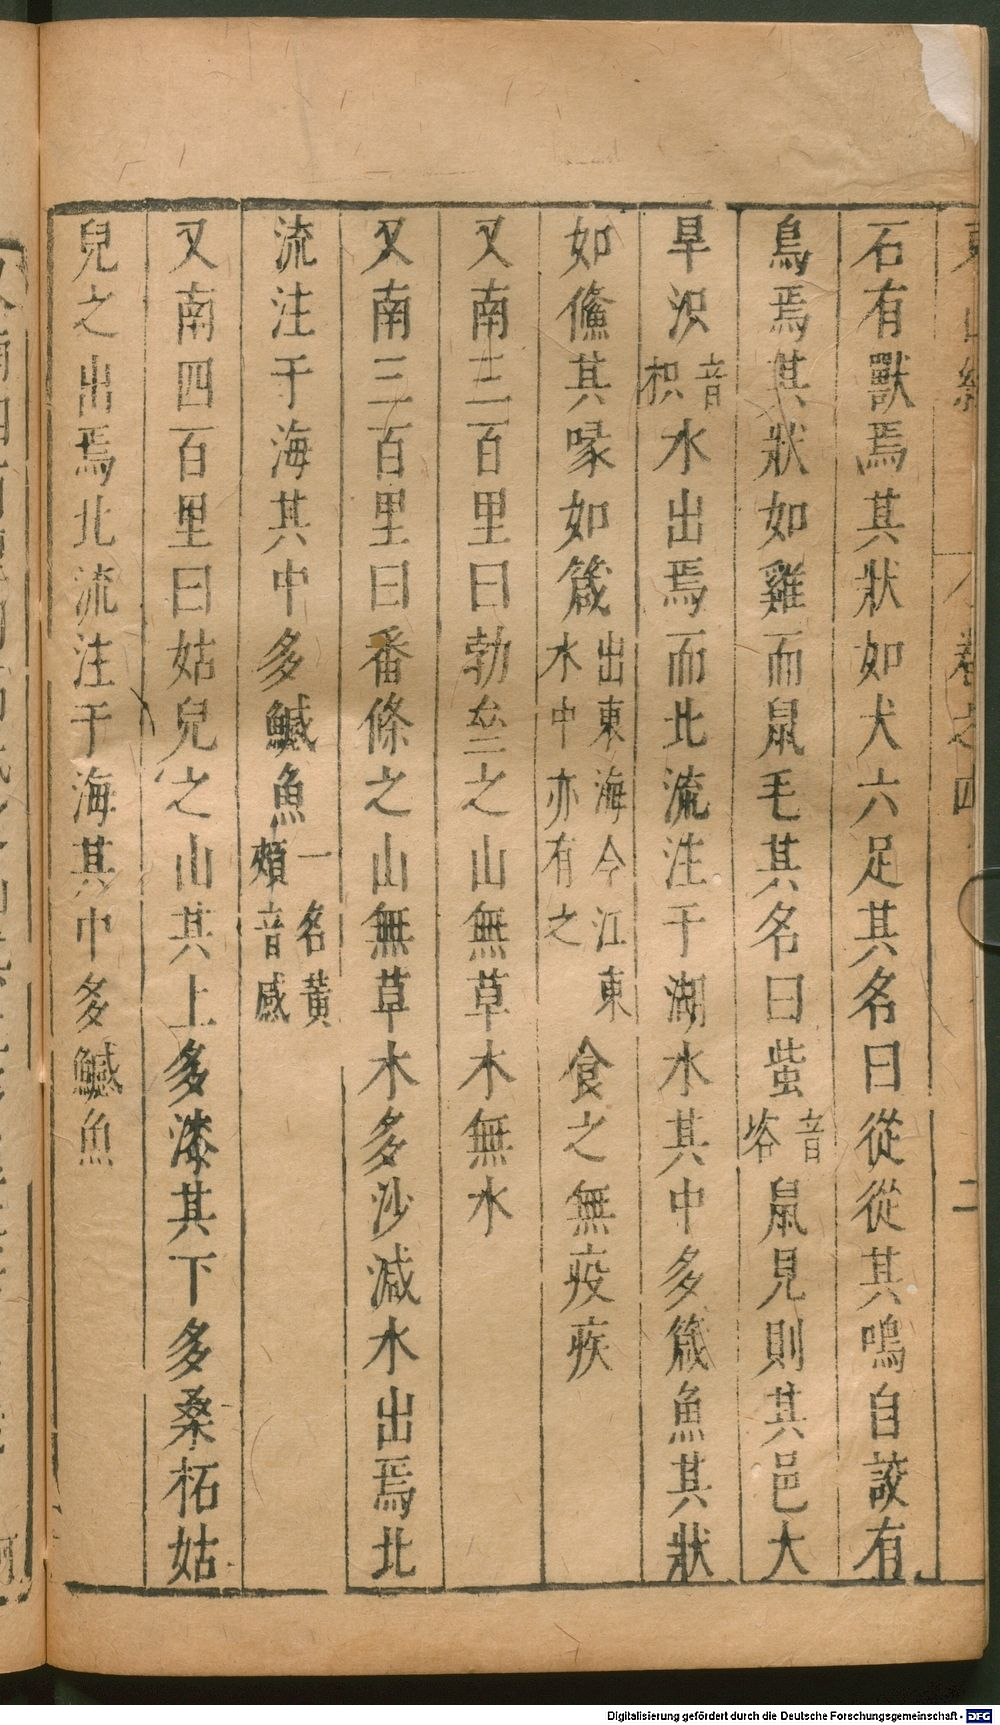 石有獸焉其狀如犬六足其名曰從從其鳴自詨有
鳥焉其狀如雞而鼠毛其名曰蚩音咨鼠見則其邑大
旱沢音枳水出焉而北流注于湖水其中多箴魚其狀
如儵其喙如箴出東海今江東水中亦有之食之無疫疾
又南三百里曰勃亝之山無草木無水
又南三百里曰番條之山無草木多沙減水出焉北
流注于海其中多鰔魚一名黃頰音感
又南四百里曰姑兒之山其上多漆其下多桑柘姑
兒之出焉北流注于海其中多鰔魚
卷之四
二
Digitalisierung gefördert durch die Deutsche Forschungsgemeinschaft - DFG